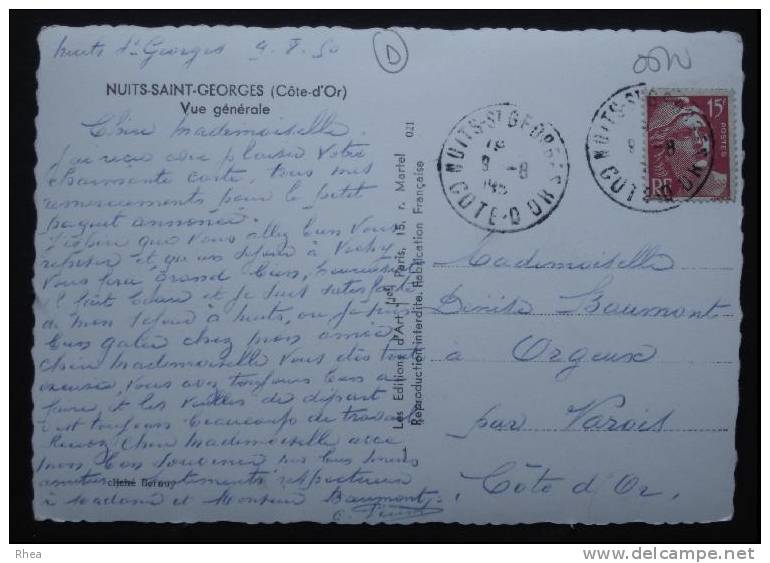 Nuits St Georges
D
NUITS-SAINT-GEORGES (Côte-d'Or)
Vue générale
Chère Mademoiselle.
J'ai reçu avec plaisir votre
charmante carte, tous mes
remerciements pour le petit
paquet annoncé.
J'espère que vous allez bien vous
reposer et que un séjour à Vichy
vous fera grand bien,
il fait beau et je suis satisfaite
de mon séjour à Nuits, où je suis
bien chez mon amie
chère Mademoiselle vous êtes
excusée, vous avez toujours bien à
faire, et les veilles de départ
c'est toujours beaucoup de travail
Recevez chère Mademoiselle avec
mon bon souvenir mes
amitiés respectueux
à Madame et Monsieur Baumont
cliché
Les Editions d'Art "Jef" Paris, 15, r. Martel 021
Reproduction interdite. Fabrication Française
NUITS-ST GEORGES
8 -8
COTE-D'OR
NUITS-ST GEORGES
8 -8
COTE-D'OR
15F
POSTES
RF
Mademoiselle
Denise Baumont
à Orgeux
par Varois
Côte d'Or.
Rhea
http://www.delcampe.net